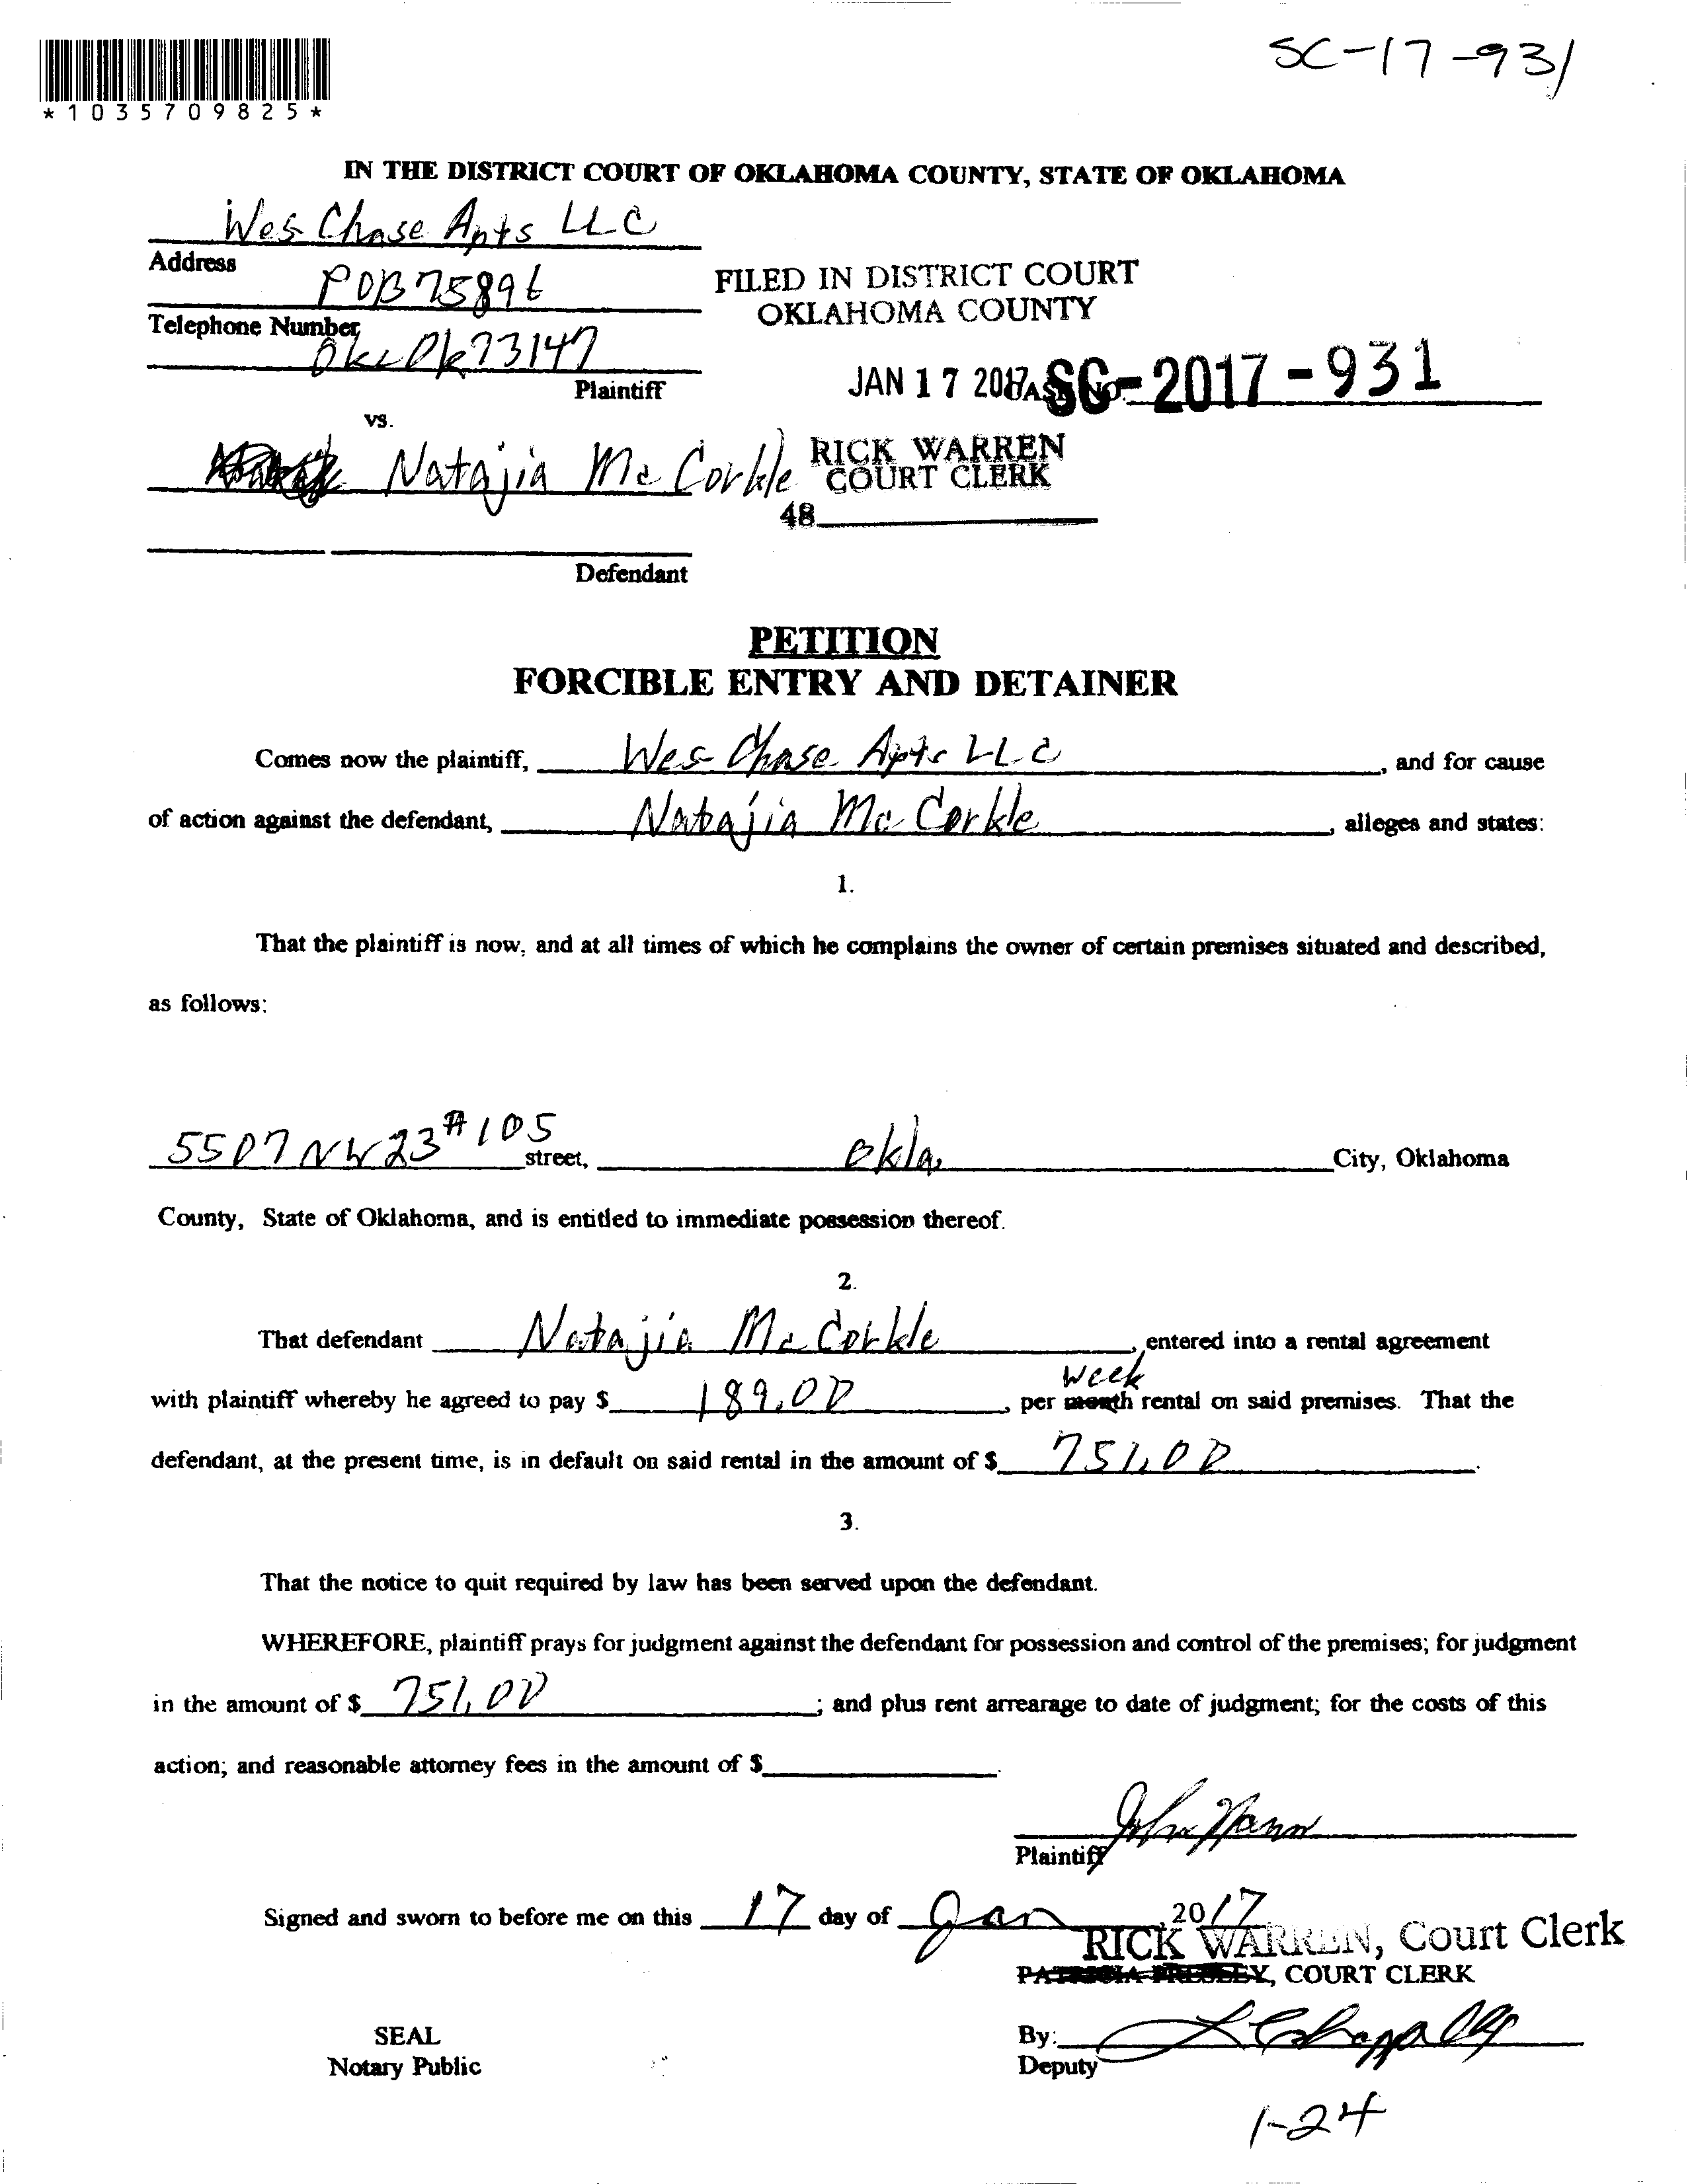 SC-17-931
*1035709825*
IN THE DISTRICT COURT OF OKLAHOMA COUNTY, STATE OF OKLAHOMA
Wes Chase Apts LLC
Address
POB 75896
FILED IN DISTRICT COURT
OKLAHOMA COUNTY
Telephone Number
Okc Ok 73147
Plaintiff
JAN 17 2017 SC-2017-931
vs.
Natajia McCorkle
RICK WARREN
COURT CLERK
48
Defendant
PETITION
FORCIBLE ENTRY AND DETAINER
Comes now the plaintiff, Wes Chase Apts LLC, and for cause
of action against the defendant, Natajia McCorkle, alleges and states:
1.
That the plaintiff is now, and at all times of which he complains the owner of certain premises situated and described,
as follows:
5507 NW 23 #105 street, Okla. City, Oklahoma
County, State of Oklahoma, and is entitled to immediate possession thereof.
2.
That defendant Natajia McCorkle, entered into a rental agreement
week
with plaintiff whereby he agreed to pay $ 189.00, per month rental on said premises. That the
defendant, at the present time, is in default on said rental in the amount of $ 751.00.
3.
That the notice to quit required by law has been served upon the defendant.
WHEREFORE, plaintiff prays for judgment against the defendant for possession and control of the premises; for judgment
in the amount of $ 751.00; and plus rent arrearage to date of judgment; for the costs of this
action; and reasonable attorney fees in the amount of $
John
Plaintiff
Signed and sworn to before me on this 17 day of Jan, 2017
RICK WARREN, Court Clerk
PATRICIA PRESLEY, COURT CLERK
SEAL
Notary Public
By:
Deputy
1-24